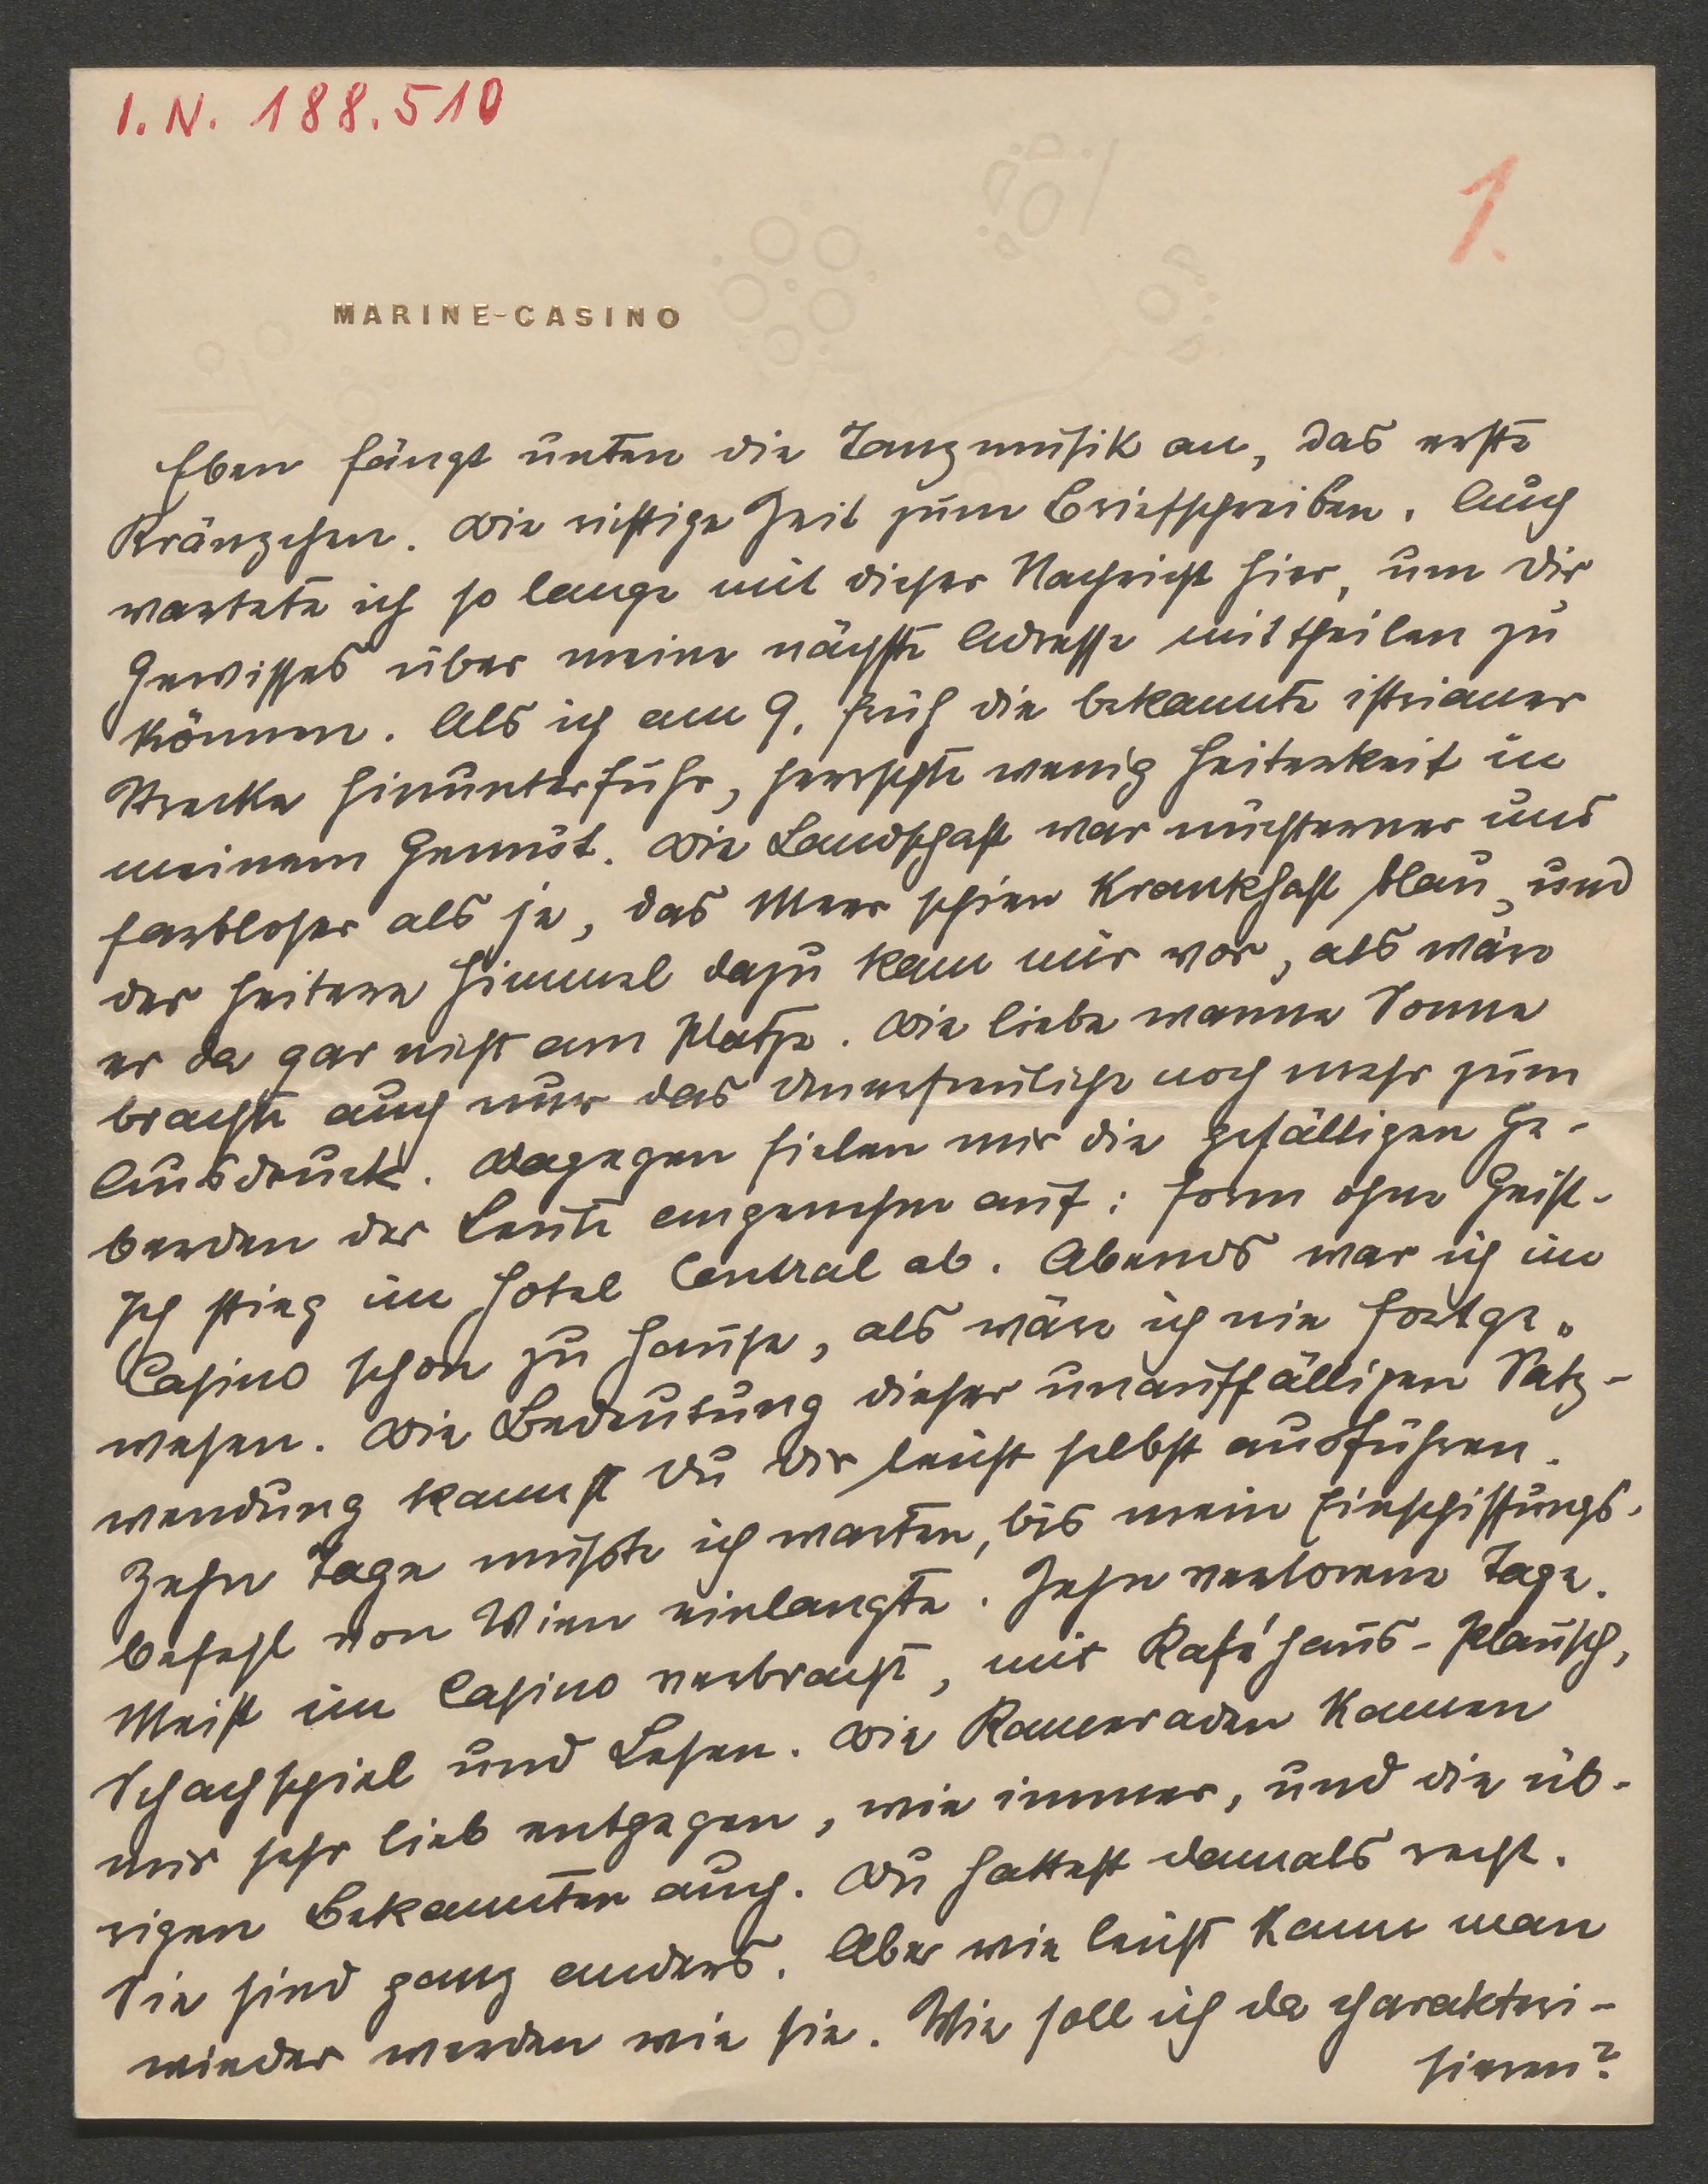 I. N. 188.510
1.
MARINE-CASINO
Eben fängt unten die Tanzmusik an, das erste
Kränzchen. Die richtige Zeit zum Briefschreiben. Auch
wartete ich so lange mit dieser Nachricht hier, um Dir
Gewisses über meine nächste Adresse mittheilen zu
können. Als ich am 9. früh die bekannte istrianer
Strecke hinunterfuhr, herrschte wenig Heiterkeit in
meinem Gemüt. Die Landschaft war nüchterner und
farbloser als je, das Meer schien krankhaft blau, und
der heitere Himmel dazu kam mir vor, als wäre
er da gar nicht am Platze. Die liebe warme Sonne
brachte auch nur das Unerfreuliche noch mehr zum
Ausdruck. Dagegen fielen mir die gefälligen Ge-
berden der Leute angenehm auf: Form ohne Geist.
Ich stieg im Hotel Central ab. Abends war ich im
Casino schon zu Hause, als wäre ich nie fortge-
wesen. Die Bedeutung dieser unauffälligen Satz-
wendung kannst Du Dir leicht selbst ausführen.
Zehn Tage mußte ich warten, bis mein Einschiffungs-
befehl von Wien einlangte. Zehn verlorene Tage.
Meist im Casino verbracht, mit Kaféhaus-Plausch,
Schachspiel und Lesen. Die Kameraden kamen
mir sehr lieb entgegen, wie immer, und die üb-
rigen Bekannten auch. Du hattest damals recht.
Sie sind ganz anders. Aber wie leicht kann man
wieder werden wie sie. Wie soll ich da charakteri-
sieren?